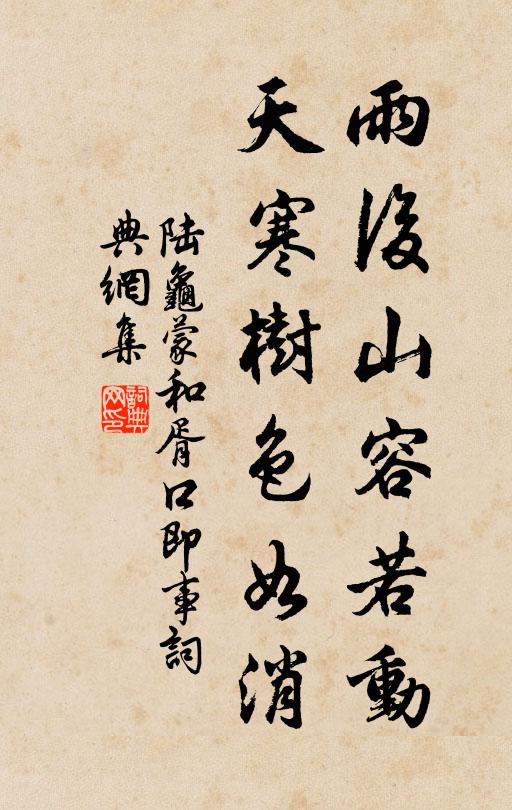 雨後山容若動
天寒樹色如消
陆龜蒙和胥口即事詞
典網集
詞典网印